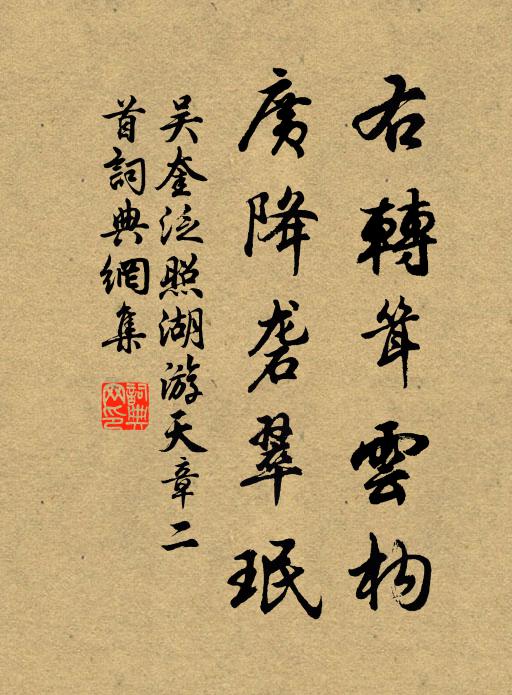 右轉聳雲构
廣降砻翠珉
吴奎泛照湖游天章二
首詞典網集
詞典網印